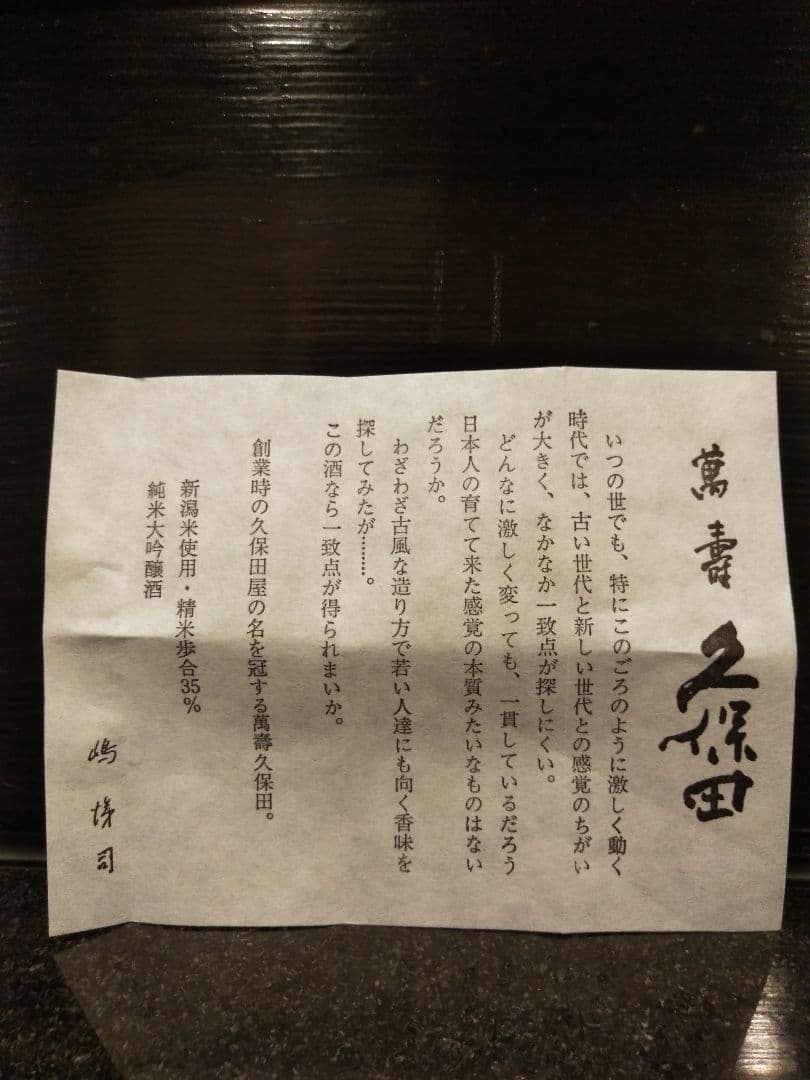 萬壽 久保田
いつの世でも、特にこのごろのように激しく動く
時代では、古い世代と新しい世代との感覚のちがい
が大きく、なかなか一致点が探しにくい。
どんなに激しく変っても、一貫しているだろう
日本人の育てて来た感覚の本質みたいなものはない
だろうか。
わざわざ古風な造り方で若い人達にも向く香味を
探してみたが………。
この酒なら一致点が得られまいか。
創業時の久保田屋の名を冠する萬壽久保田。
新潟米使用・精米歩合35%
純米大吟醸酒
嶋悌司